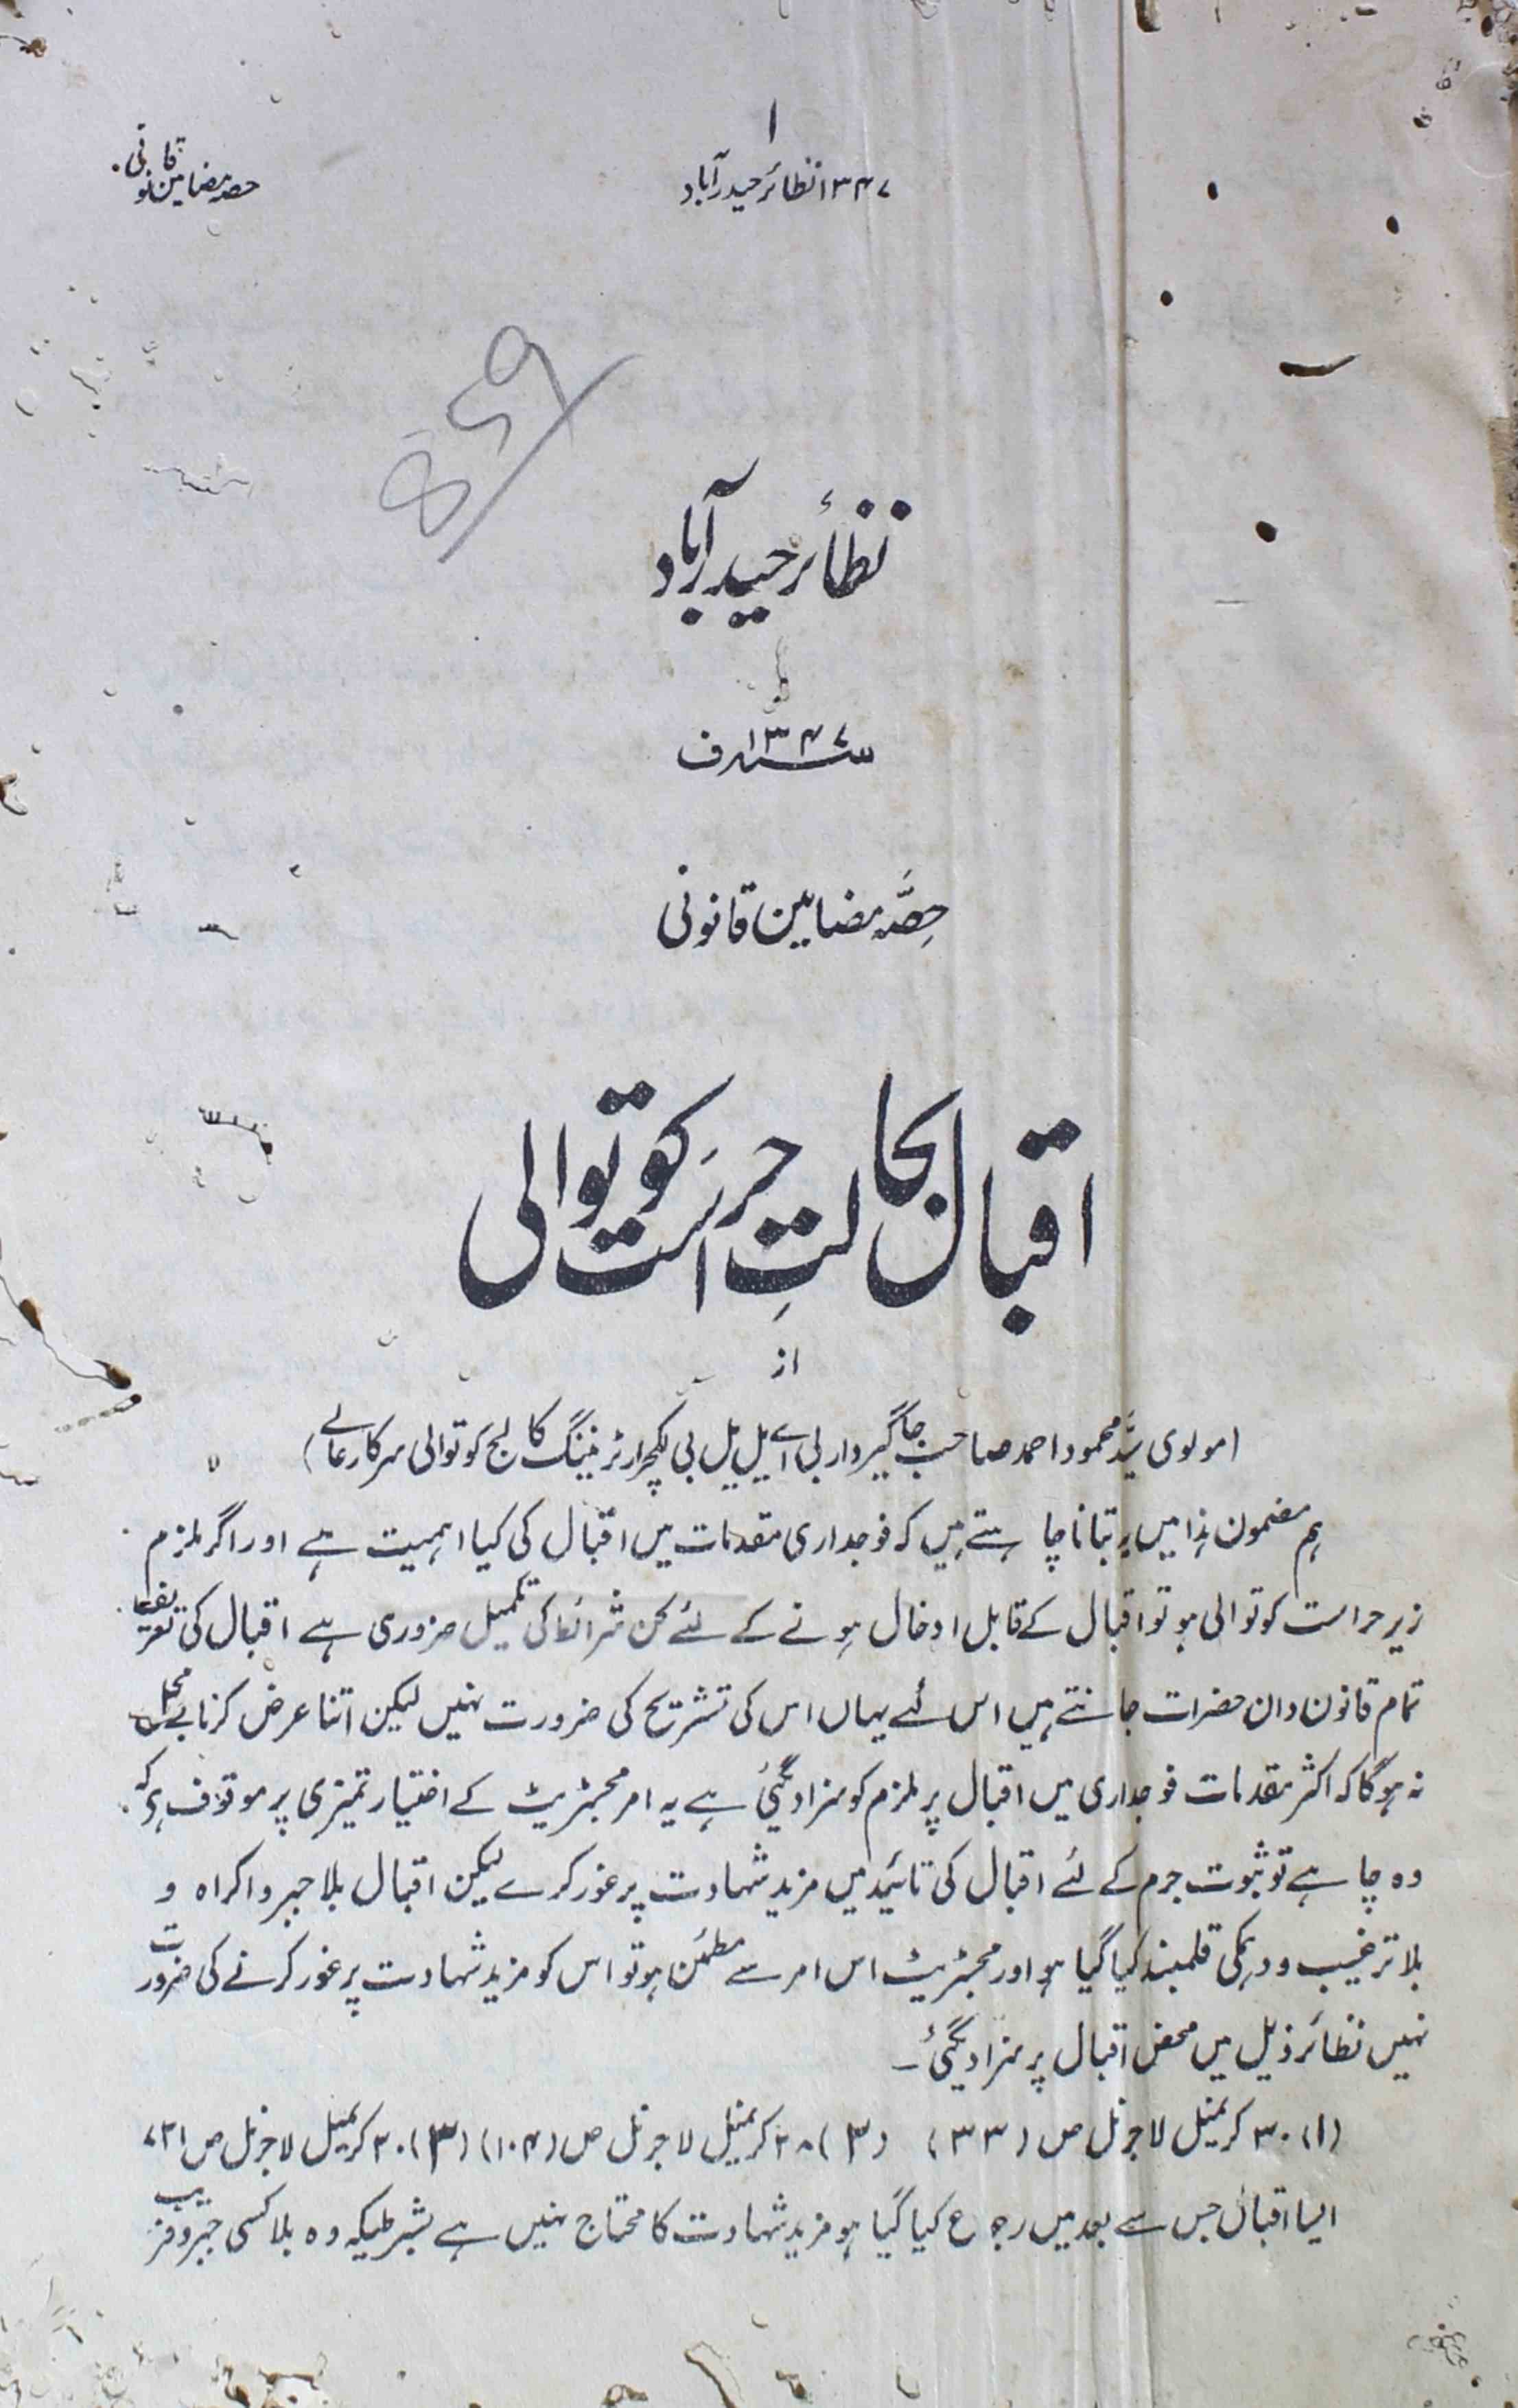 ۱
۱۳۴۷ نظائر حیدرآباد
حصہ مضامین قانونی
859
نظائر حیدرآباد
سنہ ۱۳۴۷ ف
حِصَّہ مضامین قانونی
اقبال بحالتِ حراست کوتوالی
از
(مولوی سیّد محمود احمد صاحب جاگیردار بی اے ایل ایل بی لکچرار ٹریننگ کالج کوتوالی سرکار عالے)
ہم مضمون ہذا میں یہ بتانا چاہتے ہیں کہ فوجداری مقدمات میں اقبال کی کیا اہمیت ہے اور اگر ملزم
زیر حراست کوتوالی ہو تو اقبال کے قابل ادخال ہونے کے لئے کن شرائط کی تکمیل ضروری ہے اقبال کی تعریف
تمام قانون دان حضرات جانتے ہیں اس لئے یہاں اس کی تشریح کی ضرورت نہیں لیکن اتنا عرض کرنا بے محل
نہ ہوگا کہ اکثر مقدمات فوجداری میں اقبال پر ملزم کو سزا دیگئی ہے یہ امر مجسٹریٹ کے اختیار تمیزی پر موقوف ہے کہ
وہ چاہے تو ثبوت جرم کے لئے اقبال کی تائید میں مزید شہادت پر غور کرے لیکن اقبال بلا جبر و اکراہ و
بلا ترغیب و دہمکی قلمبند کیا گیا ہو اور مجسٹریٹ اس امر سے مطمئن ہو تو اس کو مزید شہادت پر غور کرنے کی ضرورت
نہیں نظائر ذیل میں محض اقبال پر سزا دیگئی۔
(۱) ۳۰ کریمنل لا جرنل ص (۳۳) (۲) ۲۸ کریمنل لا جرنل ص (۱۰۴) (۳) ۲۰ کریمنل لا جرنل ص ۷۲۱
ایسا اقبال جس سے بعد میں رجوع کیا گیا ہو مزید شہادت کا محتاج نہیں ہے بشرطیکہ وہ بلا کسی جبر و فریب